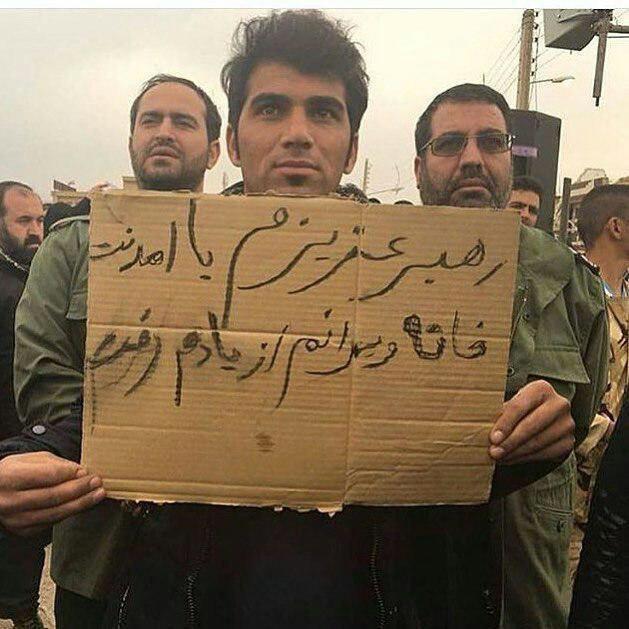 رهبر عزیزم با امدنت
خانه ویرانم از یادم رفت